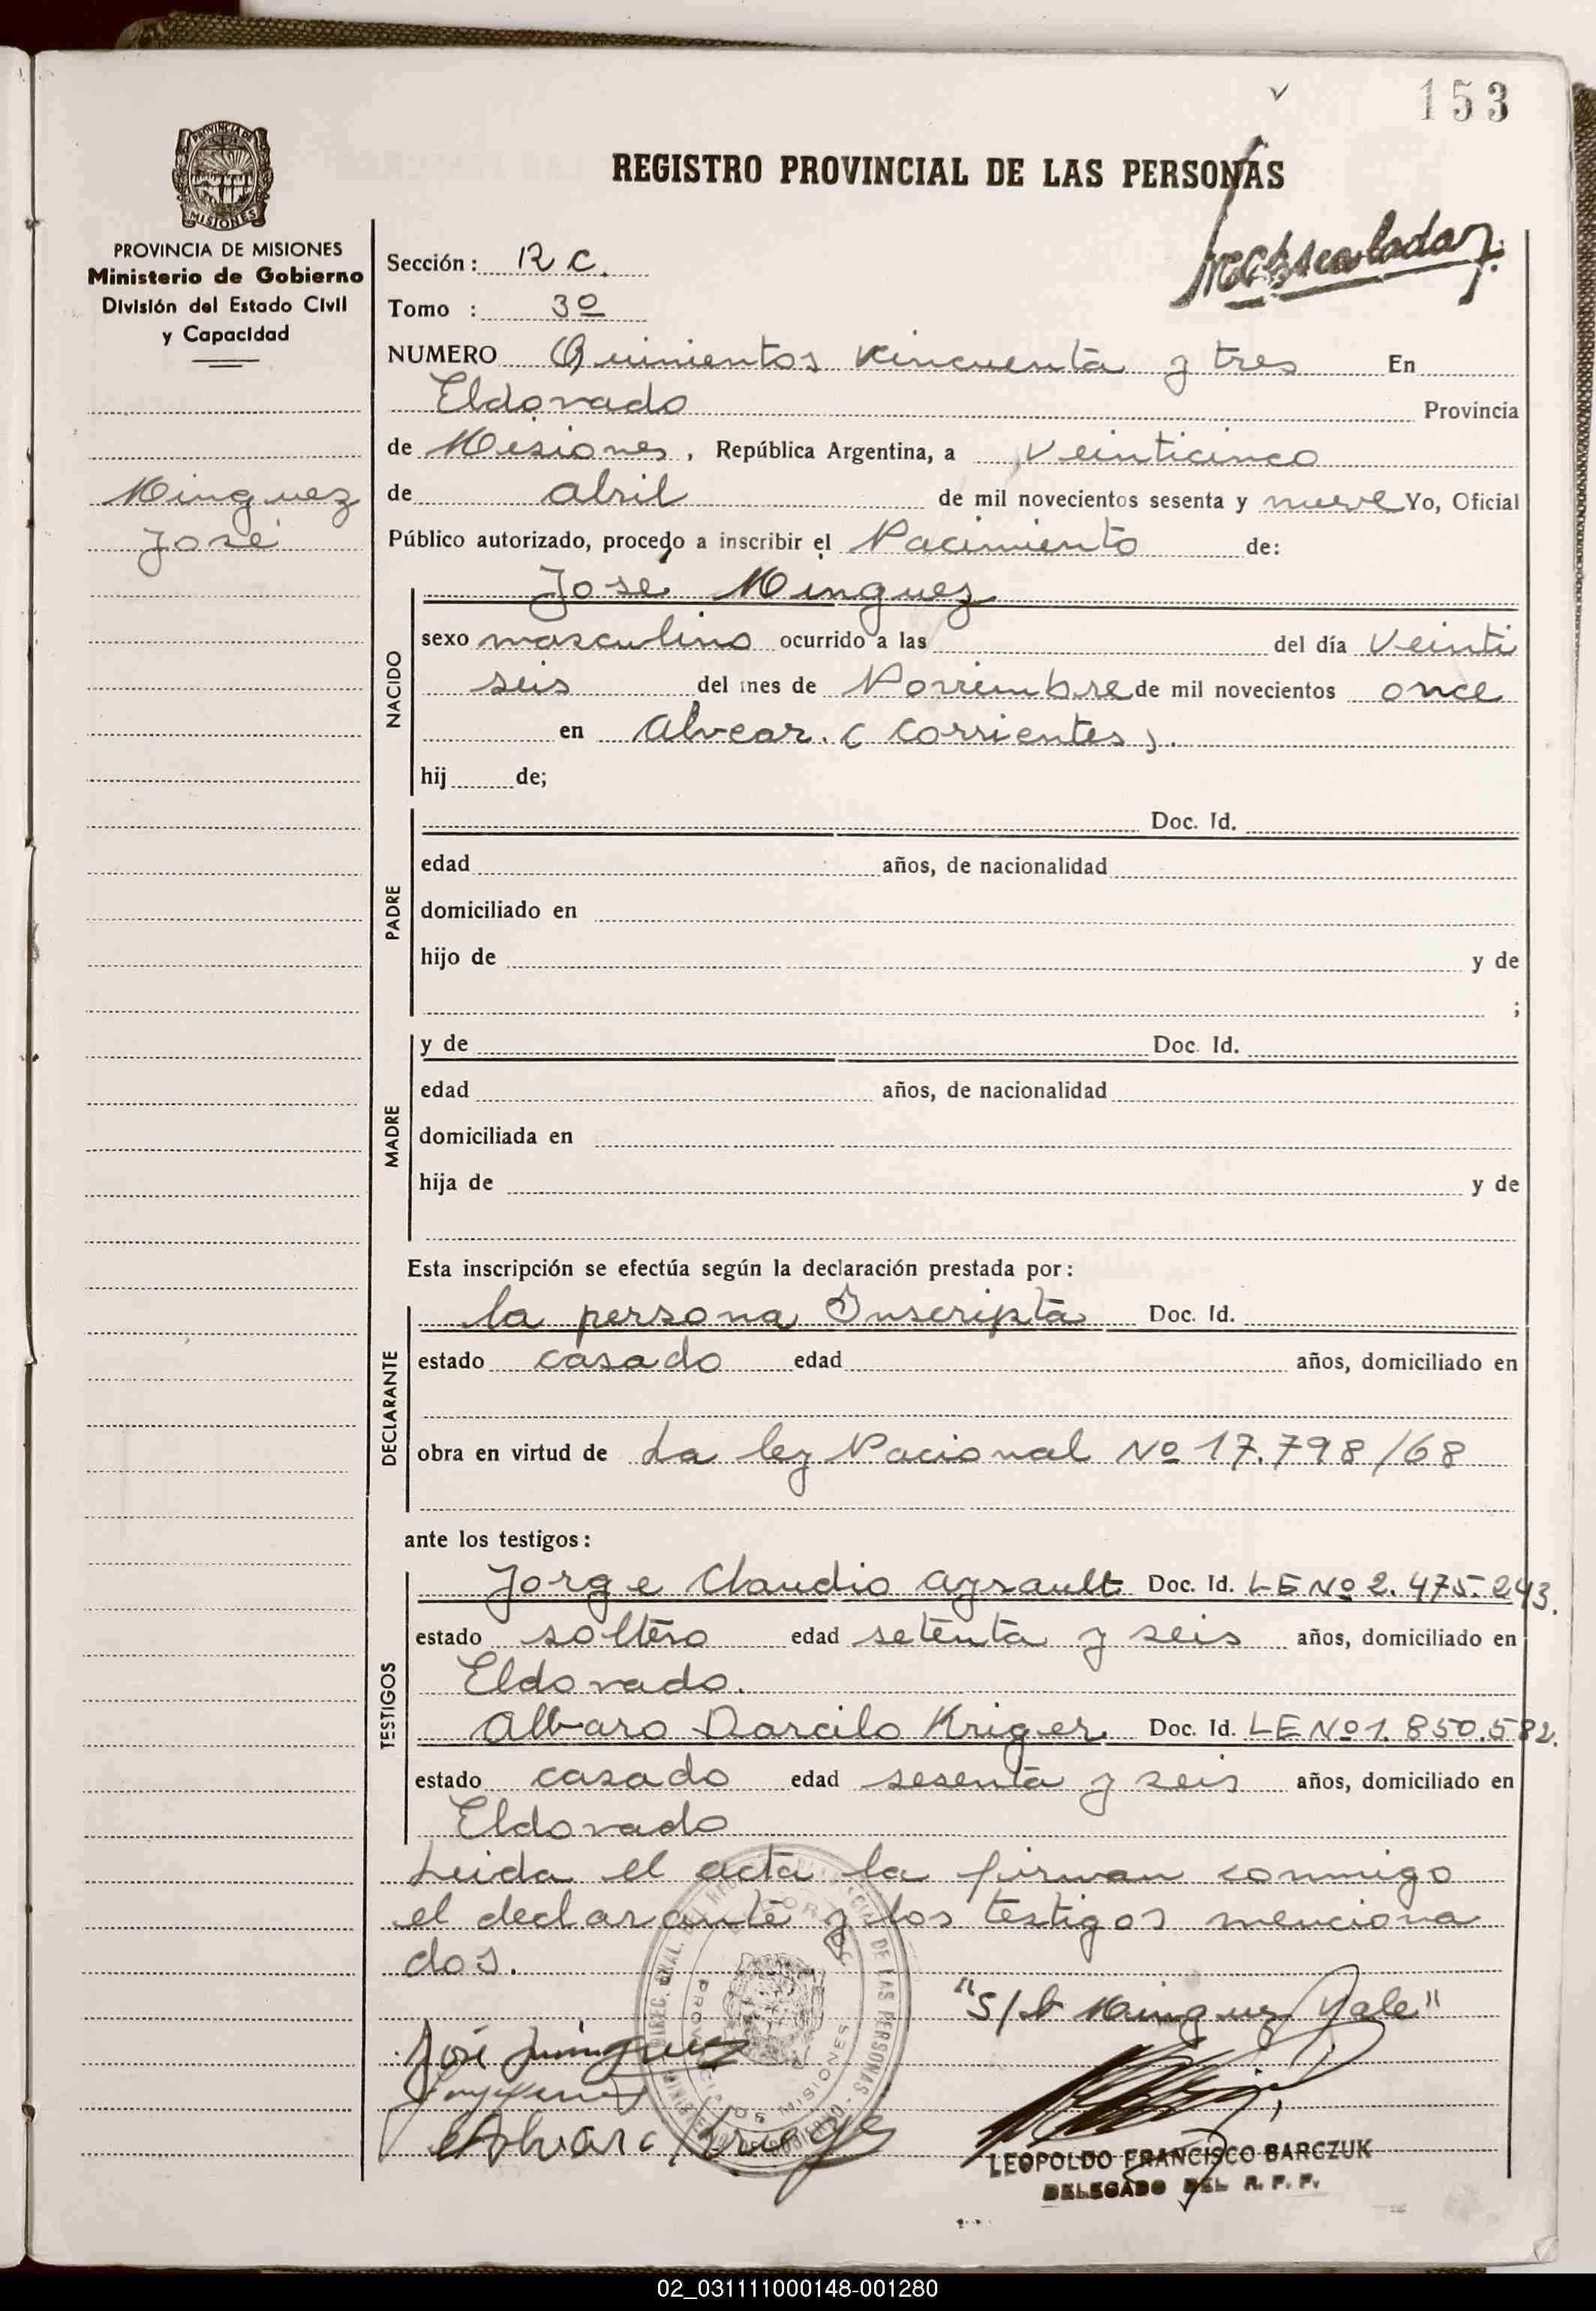 153
REGISTRO PROVINCIAL DE LAS PERSONAS
PROVINCIA DE
MISIONES
PROVINCIA DE MISIONES
Ministerio de Gobierno
División del Estado Civil
y Capacidad
Sección: R C.
Tomo : 3º
NUMERO Quinientos cincuenta y tres En
Eldorado Provincia
de Misiones, República Argentina, a veinticinco
Minguez
José
de abril de mil novecientos sesenta y nueve Yo, Oficial
Público autorizado, procedo a inscribir el Nacimiento de:
José Minguez
NACIDO
sexo masculino ocurrido a las del día Veinti
seis del mes de Noviembre de mil novecientos once
en Alvear. (Corrientes).
hij de;
PADRE
Doc. Id.
edad años, de nacionalidad
domiciliado en
hijo de y de
;
MADRE
y de Doc. Id.
edad años, de nacionalidad
domiciliada en
hija de y de
Esta inscripción se efectúa según la declaración prestada por:
DECLARANTE
la persona Inscripta Doc. Id.
estado casado edad años, domiciliado en
obra en virtud de La ley Nacional Nº 17.798/68
ante los testigos:
TESTIGOS
Jorge Claudio Ayrault Doc. Id. LE Nº 2.475.243.
estado soltero edad setenta y seis años, domiciliado en
Eldorado.
Alvaro Darcilo Kriger Doc. Id. LE Nº 1.850.582.
estado casado edad sesenta y seis años, domiciliado en
Eldorado
Leida el acta la firman conmigo
el declarante y los testigos menciona
dos.
"S/b Minguez Vale"
José Minguez
Alvaro Kriger
LEOPOLDO FRANCISCO BARCZUK
DELEGADO DEL R. P. P.
02_031111000148-001280